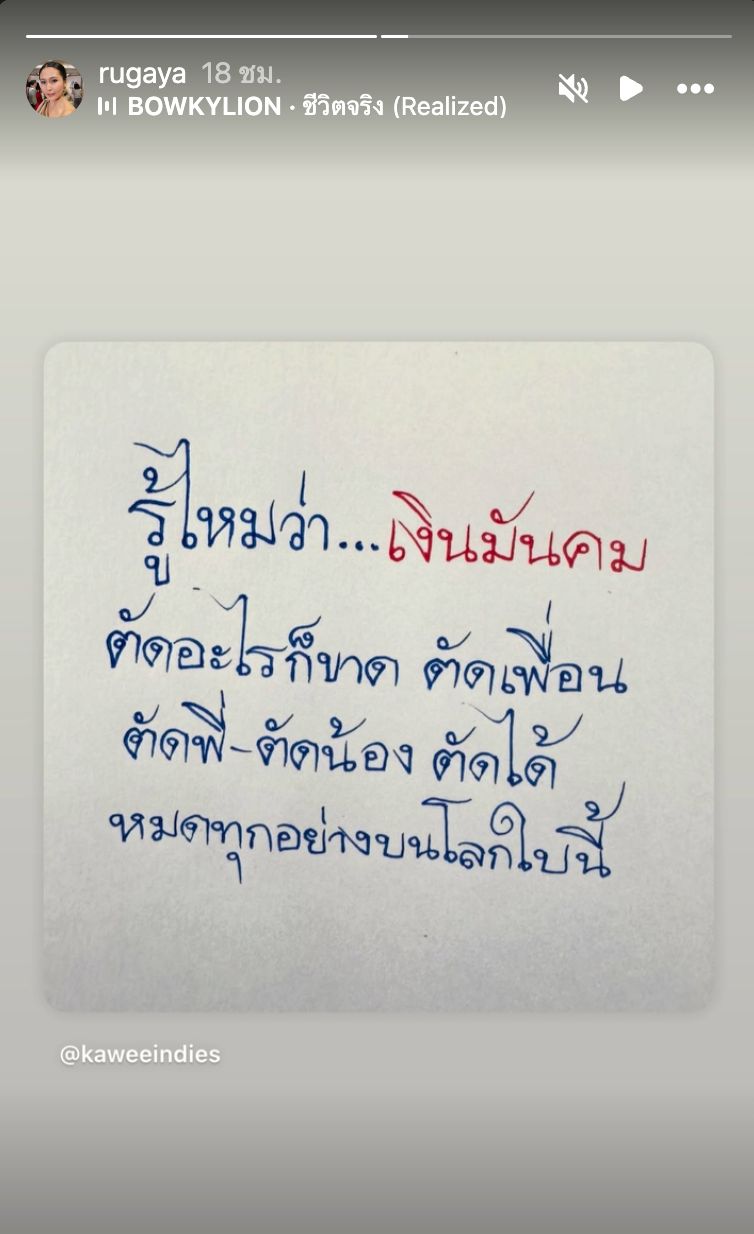 rugaya 18 ชม.
BOWKYLION · ชีวิตจริง (Realized)
รู้ไหมว่า...เงินมันคม
ตัดอะไรก็ขาด ตัดเพื่อน
ตัดพี่-ตัดน้อง ตัดได้
หมดทุกอย่างบนโลกใบนี้
@kaweeindies